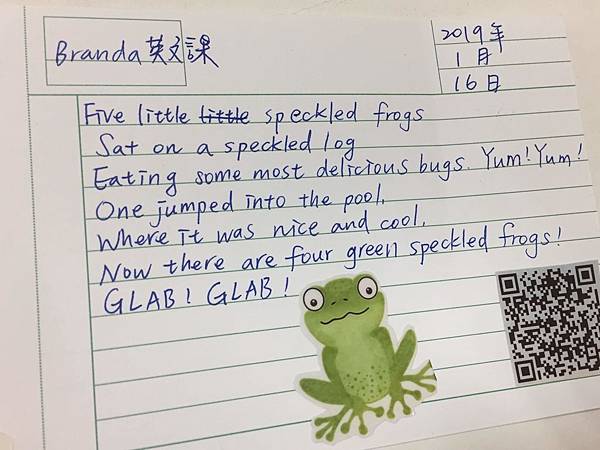 Branda 英文課
2019年
1月
16日
Five little little speckled frogs
Sat on a speckled log
Eating some most delicious bugs. Yum! Yum!
One jumped into the pool,
Where it was nice and cool,
Now there are four green speckled frogs!
GLAB! GLAB!